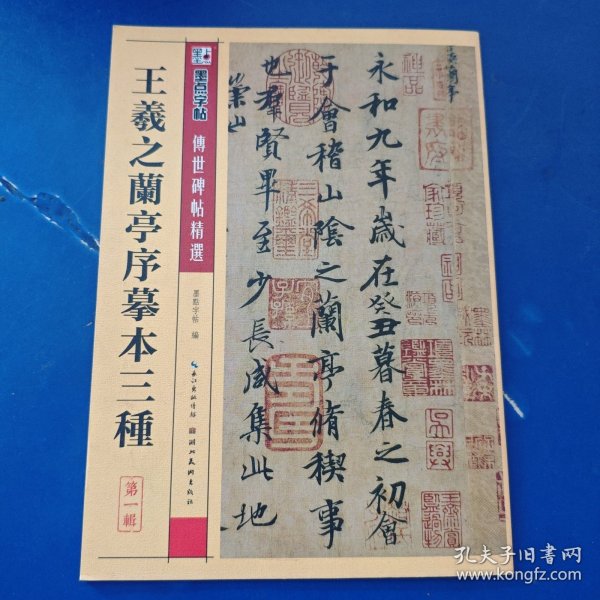 王羲之蘭亭序摹本三種
第一輯
墨点
墨点字帖
傳世碑帖精選
墨點字帖 編
長江出版傳媒
湖北美術出版社
永和九年歲在癸丑暮春之初會
于會稽山陰之蘭亭脩稧事
也羣賢畢至少長咸集此地
孔夫子旧书网
www.kongfz.com